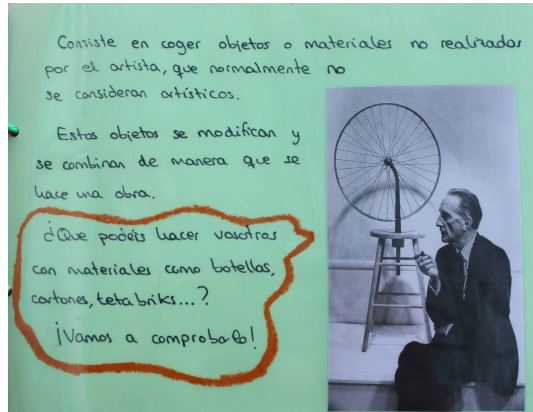 Consiste en coger objetos o materiales no realizados
por el artista, que normalmente no
se consideran artísticos.
Estos objetos se modifican y
se combinan de manera que se
hace una obra.
¿Que podéis hacer vosotros
con materiales como botellas,
cartones, tetabriks...?
¡Vamos a comprobarlo!